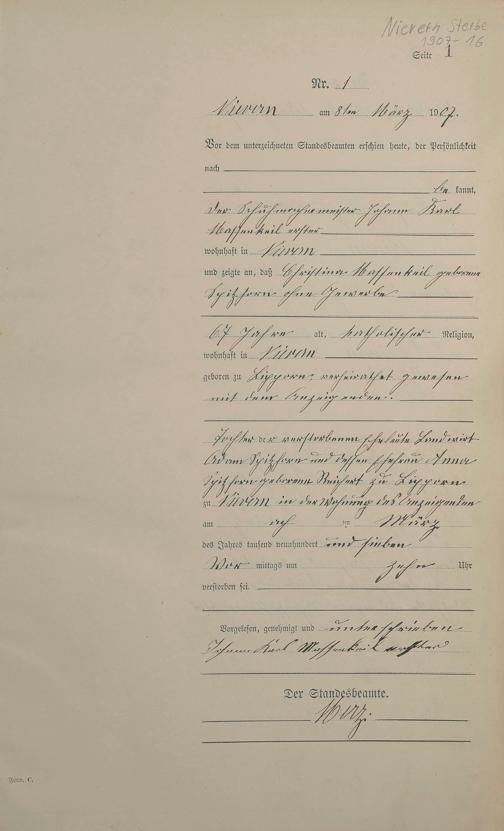 Nievern Sterbe
1907-16
Seite 1
Nr. 1
Nievern am 8ten März 1907.
Vor dem unterzeichneten Standesbeamten erschien heute, der Persönlichkeit
nach
be kannt,
der Schuhmachermeister Johann Karl
Massenkeil erster
wohnhaft in Nievern
und zeigte an, daß Christina Massenkeil geborene
Spitzhorn ohne Gewerbe
67 Jahre alt, katholischer Religion,
wohnhaft in Nievern
geboren zu Lipporn, verheirathet gewesen
mit dem Anzeigenden.
Tochter der verstorbenen Eheleute Landwirt
Adam Spitzhorn und dessen Ehefrau Anna
Spitzhorn geborenen Reichert zu Lipporn
zu Nievern in der Wohnung des Anzeigenden
am ach ten März
des Jahres tausend neunhundert und sieben
Vor mittags um zehn Uhr
verstorben sei.
Vorgelesen, genehmigt und unterschrieben
Johann Karl Massenkeil erster
Der Standesbeamte.
Form. C.